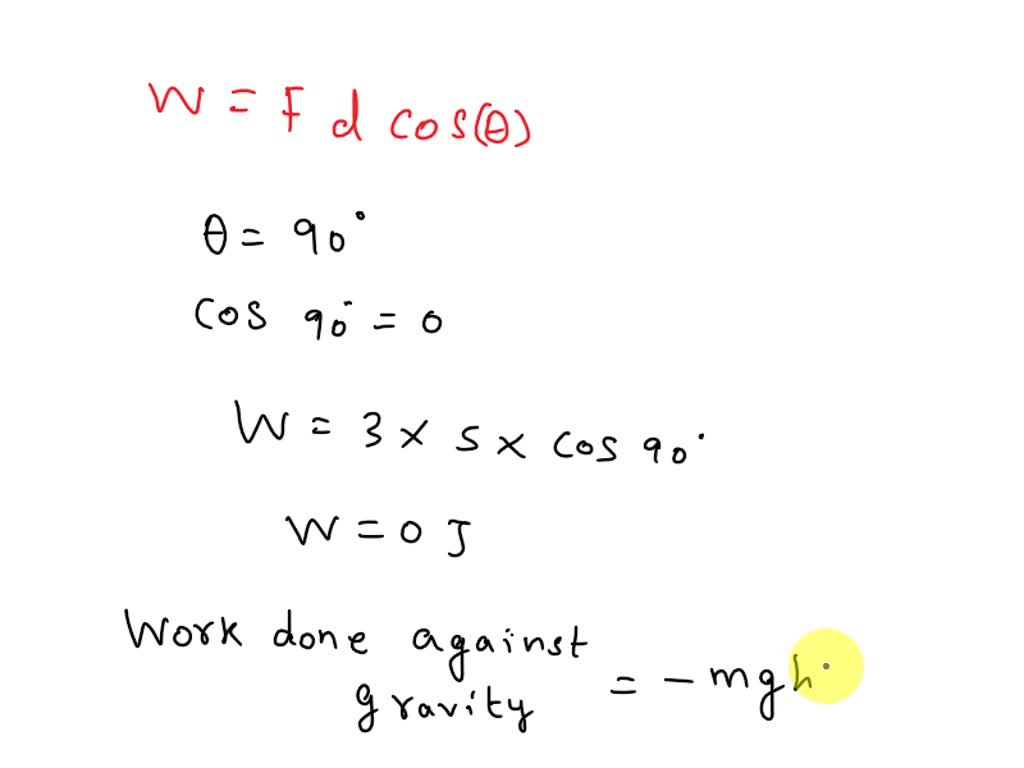 W = F d cos(θ)
θ = 90°
cos 90° = 0
W = 3 × 5 × cos 90°
W = 0 J
Work done against
gravity = - mgh